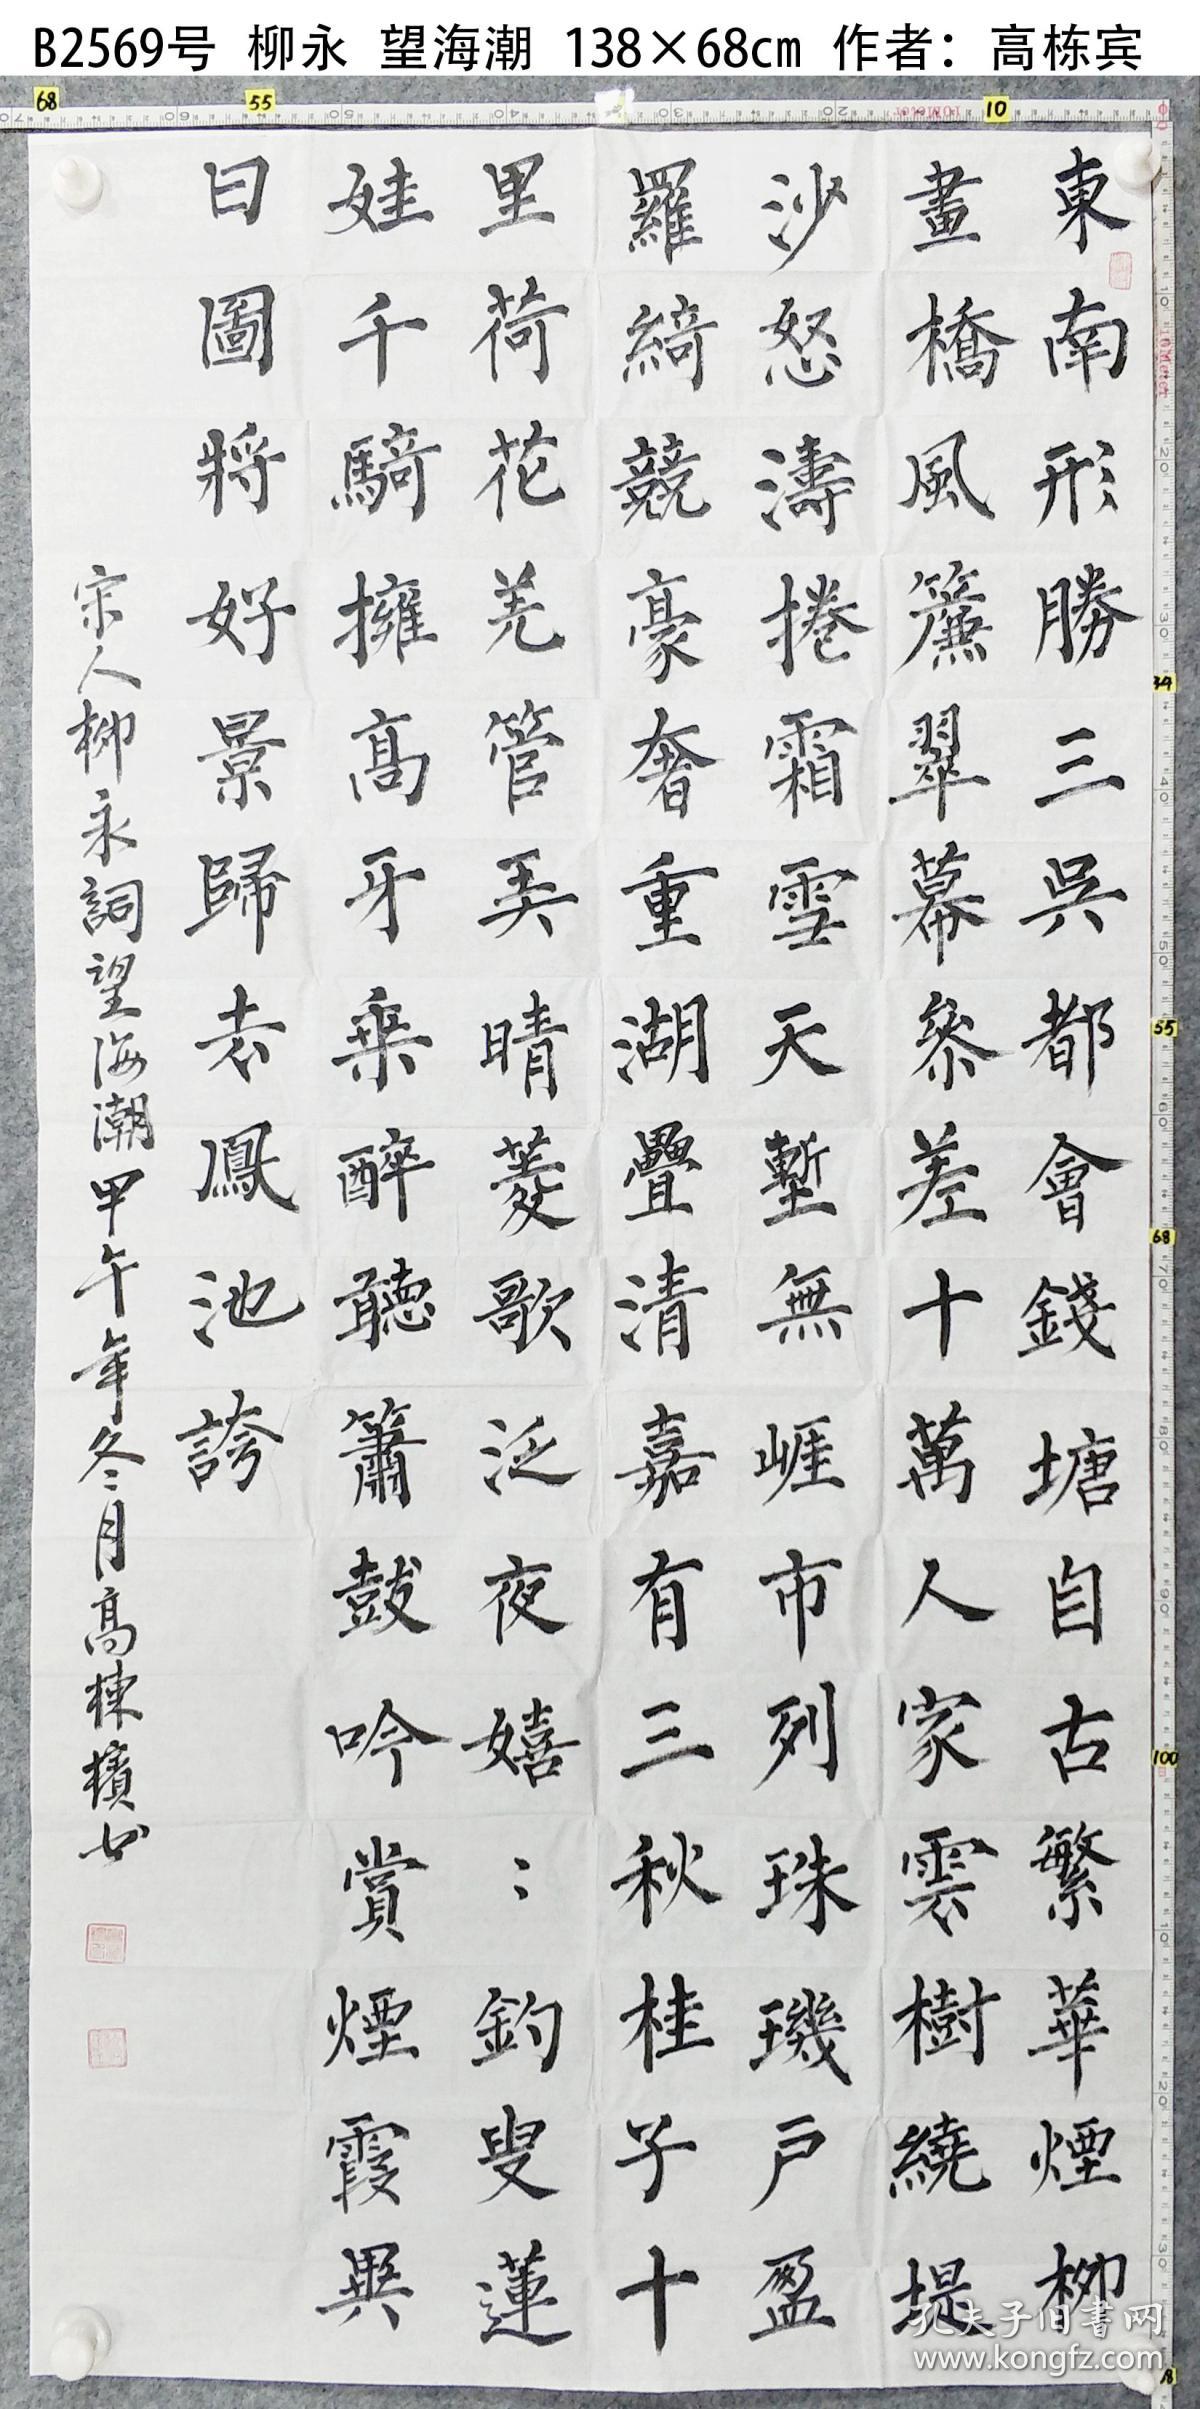 B2569号 柳永 望海潮 138×68cm 作者：高栋宾
東南形勝三吳都會錢塘自古繁華煙柳
畫橋風簾翠幕參差十萬人家雲樹繞堤
沙怒濤捲霜雪天塹無崕市列珠璣戶盈
羅綺競豪奢重湖疊清嘉有三秋桂子十
里荷花羌管弄晴菱歌泛夜嬉：釣叟蓮
娃千騎擁高牙乘醉聽簫鼓吟賞煙霞異
日圖將好景歸去鳳池誇
宋人柳永詞望海潮甲午年冬月高棟檳书
68
55
10
34
55
68
100
孔夫子旧書网
www.kongfz.com